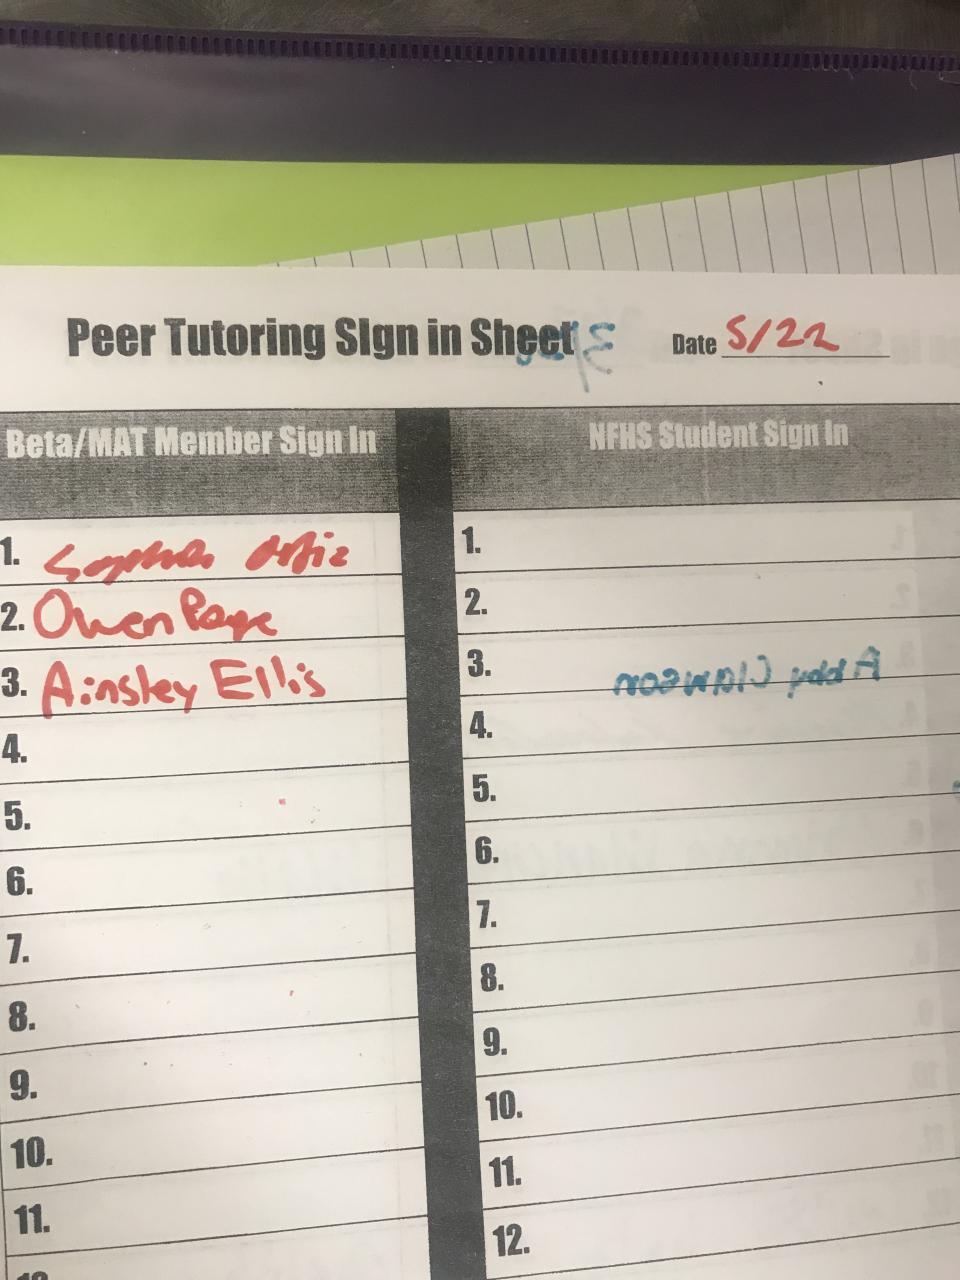 Peer Tutoring SIgn in Sheet Date 5/22
Beta/MAT Member Sign In NFHS Student Sign In
1. Ortiz 1.
2. Owen Page 2.
3. Ainsley Ellis 3. Abby Clawson
4. 4.
5. 5.
6. 6.
7. 7.
8. 8.
9. 9.
10. 10.
11. 11.
12.